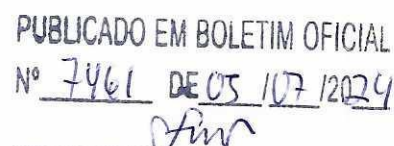 PUBLICADO EM BOLETIM OFICIAL
Nº 7461 DE 05 / 07 / 2024